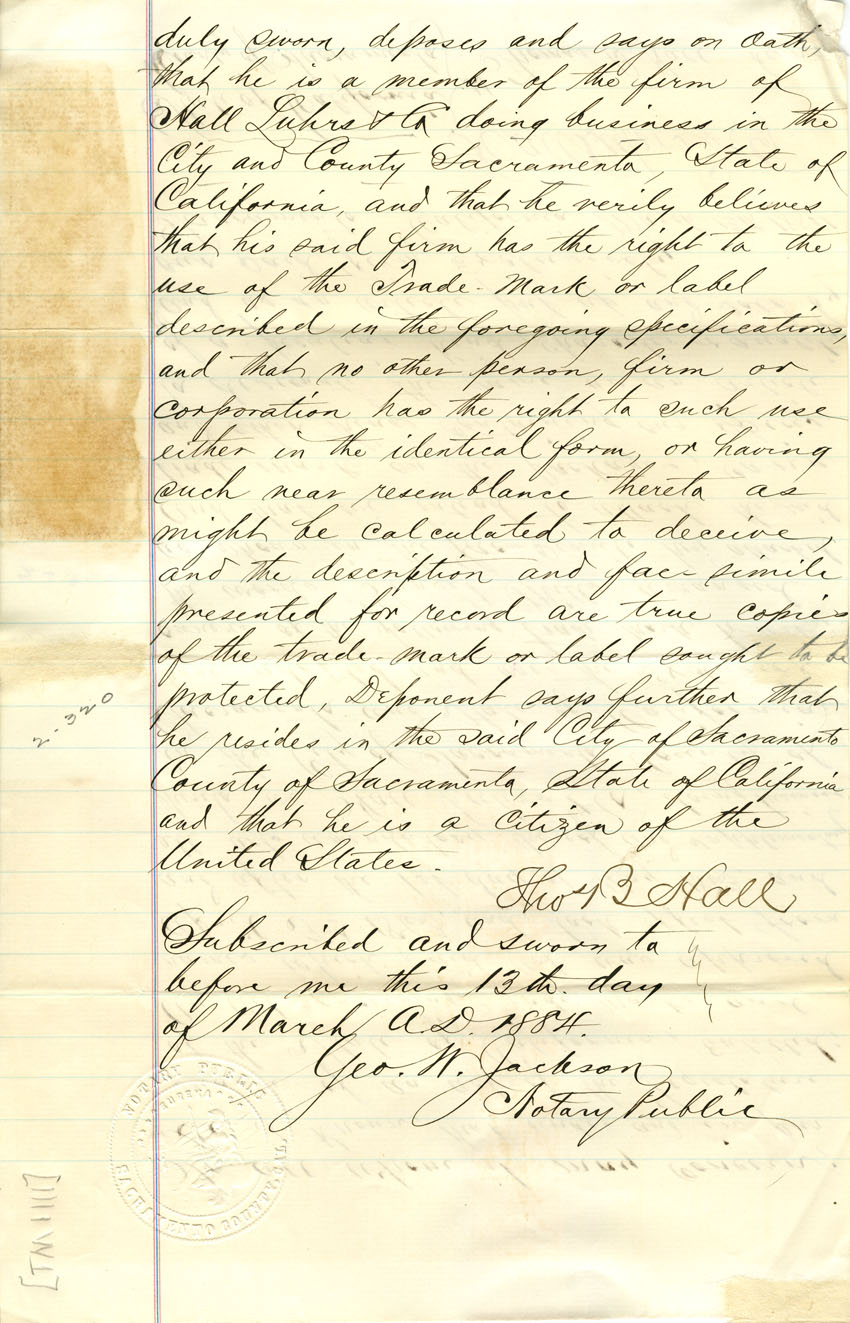 duly sworn, deposes and says on oath,
that he is a member of the firm of
Hall Luhrs & Co doing business in the
City and County Sacramento, State of
California, and that he verily believes
that his said firm has the right to the
use of the Trade-Mark or label
described in the foregoing specifications,
and that no other person, firm or
corporation has the right to such use
either in the identical form, or having
such near resemblance thereto as
might be calculated to deceive,
and the description and fac-simile
presented for record are true copies
of the trade-mark or label sought to be
protected, Deponent says further that
2-320
he resides in the said City of Sacramento
County of Sacramento, State of California
and that he is a citizen of the
United States.
Thos B Hall
Subscribed and sworn to
before me this 13th. day
of March A.D. 1884.
Geo. W. Jackson
Notary Public
NOTARY PUBLIC
EUREKA
SACRAMENTO COUNTY, CAL.